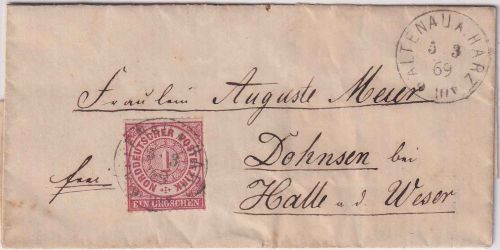 ALTENAU A. HARZ
5 3
69
Fraulein Auguste Meier
Dohnsen bei
frei
Halle a. d. Weser
NORDDEUTSCHER POSTBEZIRK
1
EIN GROSCHEN